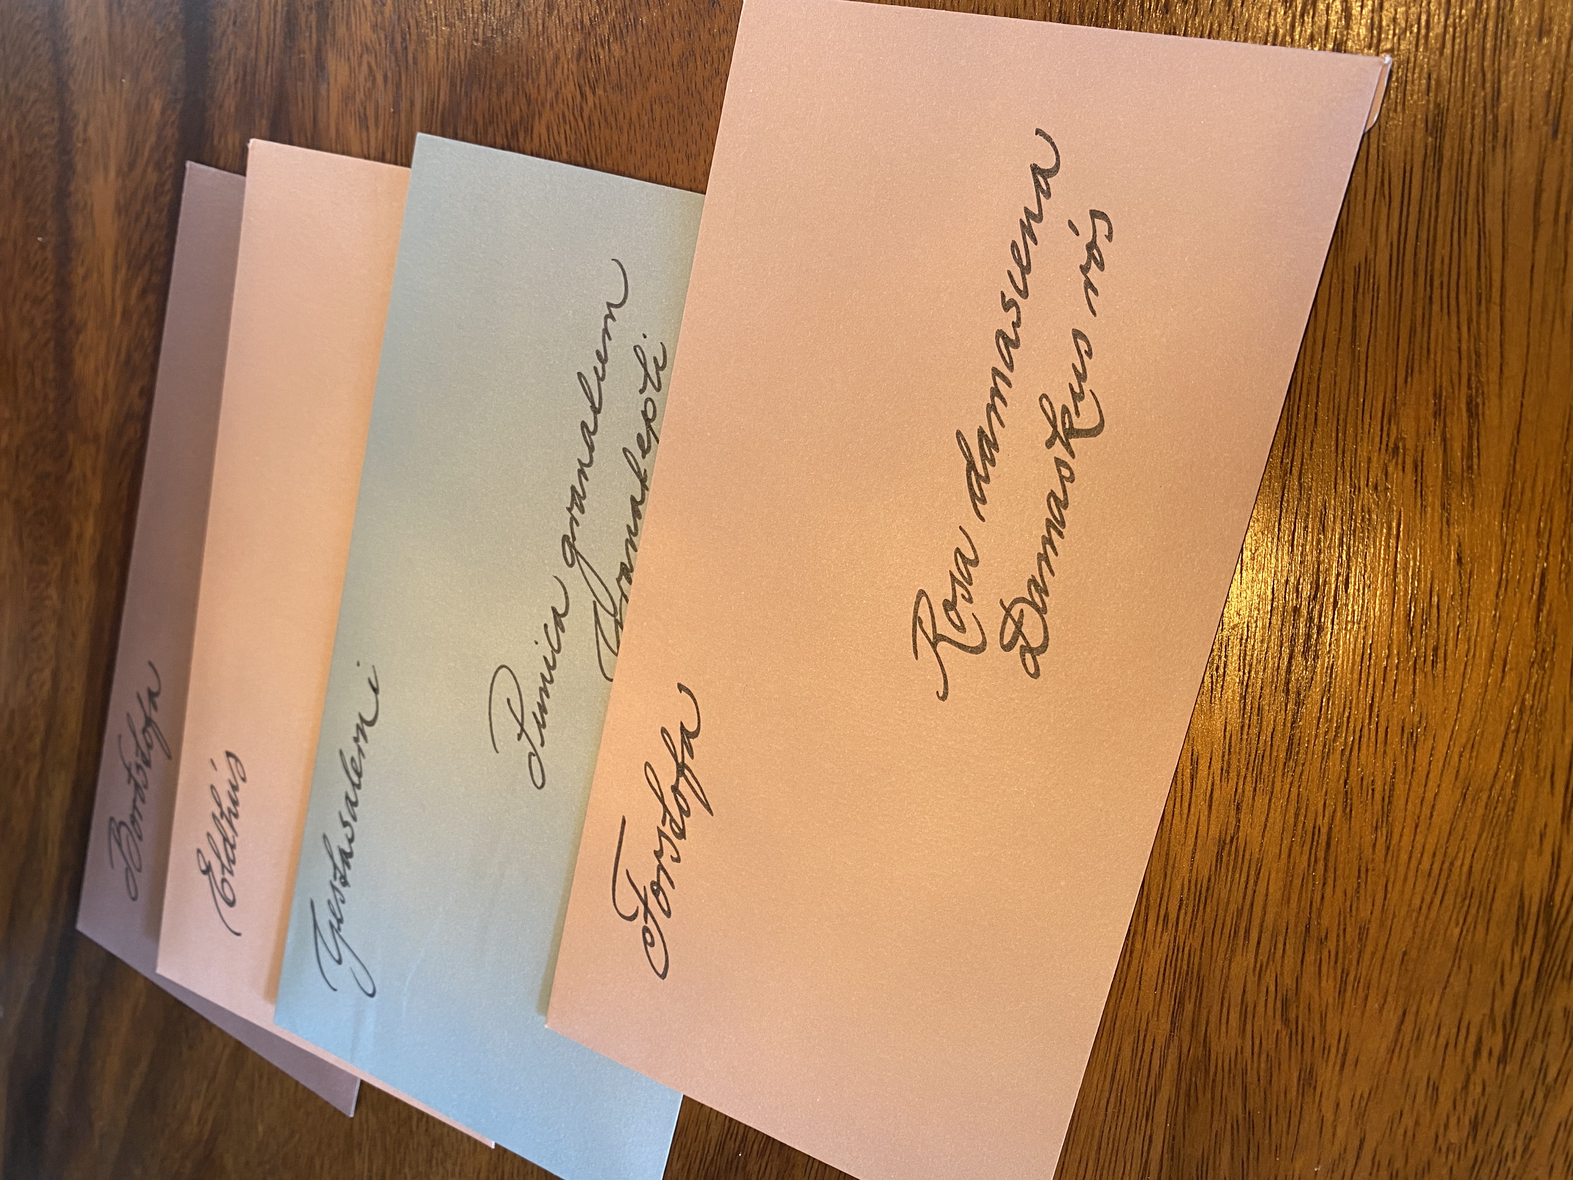 Bordstofa
Eldhús
Gestasalerni
Punica granatum
Granatepli
Forstofa
Rosa damascena
Damaskus rós